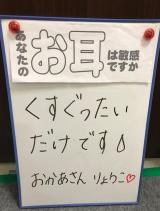 あなたのお耳は敏感ですか
くすぐったい
だけです
おかあさん りょうこ♡